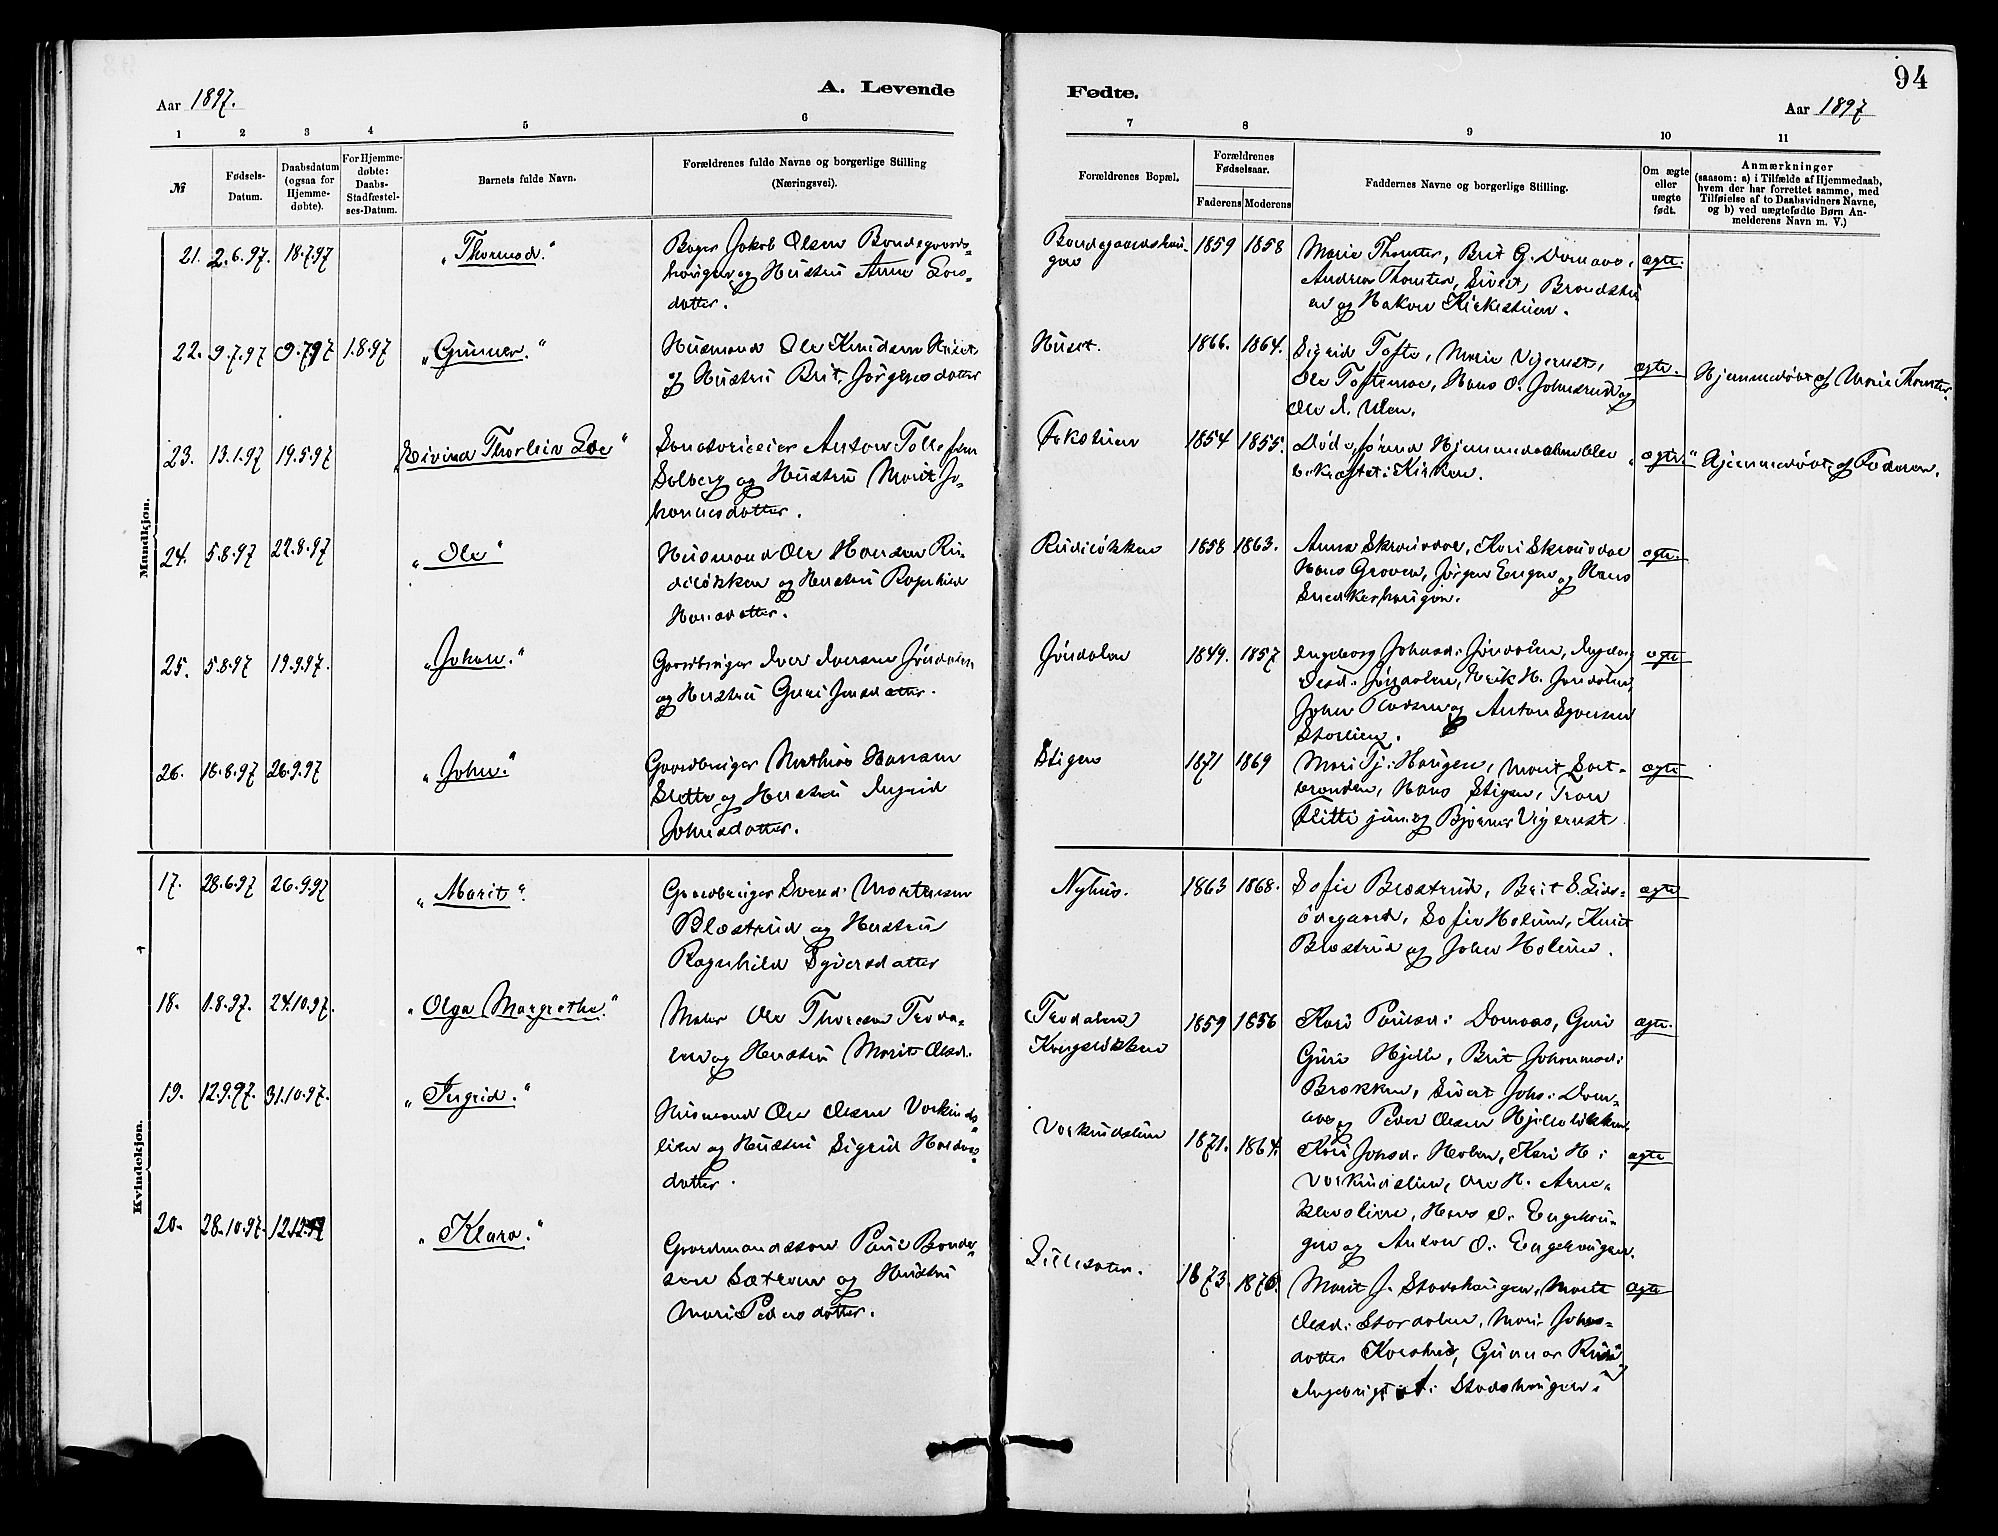 94
Aar 1897.
A. Levende
Fødte.
Aar 1897
1 2 3 4 5 6
7 8 9 10 11
№
Fødsels-
Datum.
Daabsdatum
(ogsaa for
Hjemme-
døbte).
For Hjemme-
døbte:
Daabs-
Stadfæstel-
ses-Datum.
Barnets fulde Navn.
Forældrenes fulde Navne og borgerlige Stilling
(Næringsvei).
Forældrenes Bopæl.
Forældrenes
Fødselsaar.
Faderens Moderens
Faddernes Navne og borgerlige Stilling.
Om ægte
eller
uægte
født.
Anmærkninger
(saasom: a) i Tilfælde af Hjemmedaab,
hvem der har forrettet samme, med
Tilføielse af to Daabsvidners Navne,
og b) ved uægtefødte Børn An-
melderens Navn m. V.)
Mandkjøn.
21. 2.6.97. 18.7.97 „Thormod.“
Jakob Olsen Bondegaards-
haugen og Hustru Anne Lars-
datter.
Bondegaardshau-
gen
1859 1858
Marie Thomter, Brit G. Domaas,
Andrea Thomter, Sivert Brændstu-
en og Hakon Kirkestuen.
ægte.
22. 9.7.97 9.7.97 1.8.97 „Gunner.“
Husmand Ole Knudsen Huset
og Hustru Brit Jørgensdatter
Huset.
1866. 1864.
Sigrid Tofte, Marie Vigerust,
Ole Toftemoe, Hans O. Johnsrud og
Ole
ægte.
Hjemmedøbt af Marie Thomter.
23. 13.1.97 19.5.97 „Eivind Thorleiv Løe“
Sanatorieeier Anton Tollefsen
Solberg og Hustru Marit Jo-
hannesdatter.
Fokstuen
1854 1855.
Døde, førend Hjemmedaaben blev
bekræftet i Kirken.
„ægte.“
Hjemmedøbt af Faderen.
24. 5.8.97 22.8.97 „Ole“
Husmand Ole Hansen Ru-
diløkken og Hustru Ragnhild
Hansdatter.
Rudiløkken
1858 1863.
Anna Skrauvdal, Kari Skrauvdal
Hans Groven, Jørgen Engen og Hans
Snekkerhaugen.
ægte.
25. 5.8.97 19.9.97. „Johan.“
Gaardbruger Iver Iversen Jøndalen
og Hustru Guri Jensdatter.
Jøndalen
1849. 1857
Ingeborg Johnsd: Jøndalen, Ingeborg
Olesd: Jøndalen, Erik H. Jøndalen,
John og Anton Syversen
Storlien.
ægte
26. 16.8.97 26.9.97 „John.“
Gaardbruger Mathias Hansen
Slette og Hustru Ingrid
Johnsdatter.
Stigen
1871 1869
Mari Tj: Haugen, Marit Sort-
brænden, Hans Stigen, Tron
Flitti jun. og Bjørner Vigerust
ægte
Kvindekjøn.
17. 28.6.97 26.9.97 „Marit“.
Gaardbruger Svend Mortensen
Blæstrud og Hustru
Ragnhild Syversdatter
Nyhus.
1863 1868.
Sofie Blæstrud, Brit E. Lids-
ødegaard, Sofie Holum, Knut
Blæstrud og John Holum.
ægte
18. 1.8.97. 24.10.97. „Olga Margrethe.“
Maler Ole Thoresen Troda-
len og Hustru Marit Olsd.
(Trodalen)
Kongsløkken
1859 1856
Kari Paulsd: Domaas, Guri
Guri Hjelle, Brit Johannesd:
Brækken, Sivert Johs: Dom-
aas og Peder Olsen Hjelleløkken
ægte.
19. 12.9.97. 31.10.97. „Ingrid.“
Husmand Ole Olsen Vorkinds-
lien og Hustru Sigrid Haldors-
datter.
Vorkindslien
1871. 1864.
Kari Johsd: Holen, Kari H:
Vorkindslien, Ole H. Arne-
klevlien, Hans O. Engehau-
gen og Anton O: Engehaugen.
ægte
20. 28.10.97. 12.12.97 „Klara.“
Gaardmandssøn Paul Bonde-
sen Sætrom og Hustru
Mari Pedersdatter.
Lillesæter.
1873. 1876.
Marit J. Stadshaugen, Marit
Olesd: Stordalen, Mari Johns-
datter Korshus, Gunnar Rudi
Ingebrigt Stadshaugen.
ægte